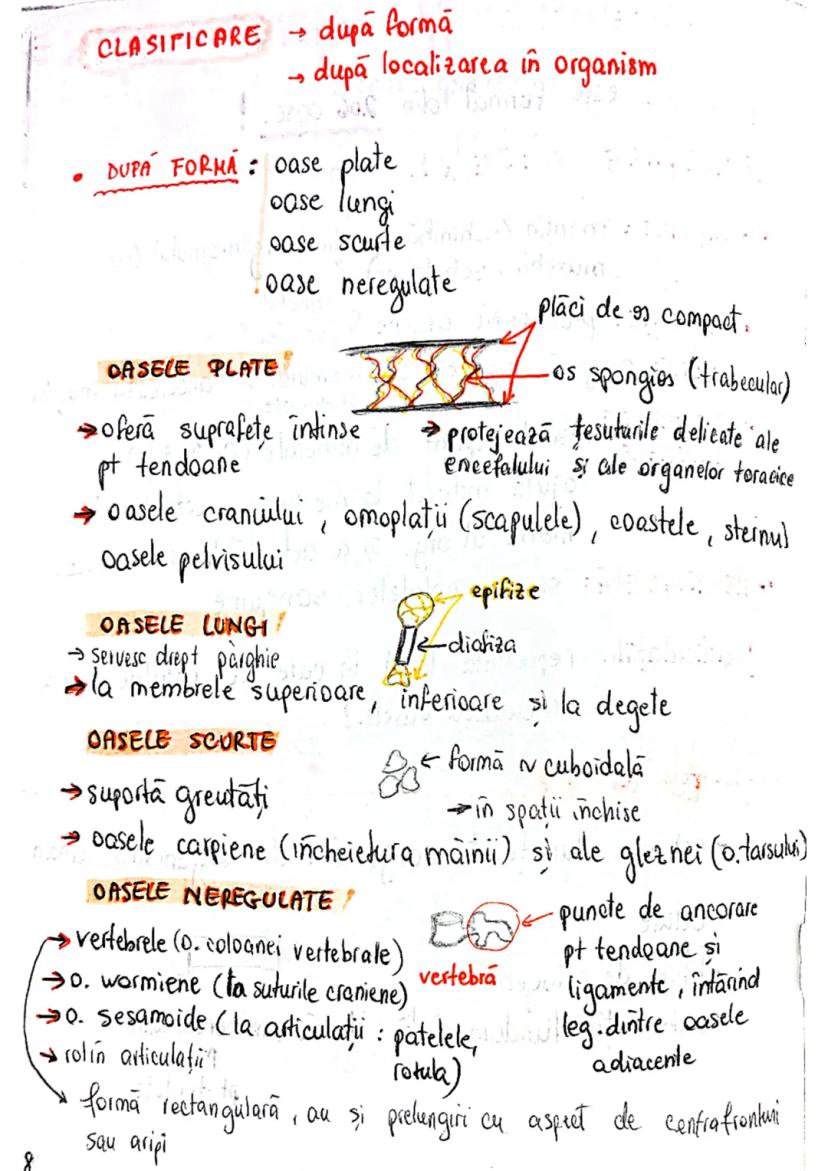 CLASIFICARE → după formă
→ după localizarea în organism
• DUPĂ FORMĂ : oase plate
oase lungi
oase scurte
oase neregulate
plăci de os compact.
OASELE PLATE!
os spongios (trabecular)
→ oferă suprafețe întinse
pt tendoane
→ protejează țesuturile delicate ale
encefalului și ale organelor toracice
→ oasele craniului, omoplații (scapulele), coastele, sternul
oasele pelvisului
epifize
OASELE LUNGI!
diafiza
→ servesc drept pârghie
→ la membrele superioare, inferioare și la degete
OASELE SCURTE
← formă ~ cuboidală
→ suportă greutăți
→ în spații închise
→ oasele carpiene (încheietura mâinii) și ale gleznei (o.tarsului)
OASELE NEREGULATE!
→ vertebrele (o. coloanei vertebrale)
→ o. wormiene (la suturile craniene)
→ o. sesamoide (la articulații : patelele,
rotula)
→ rol în articulații
vertebră
puncte de ancorare
pt tendoane și
ligamente, întărind
leg. dintre oasele
adiacente
formă rectangulară, au și prelungiri cu aspect de
sau aripi
8